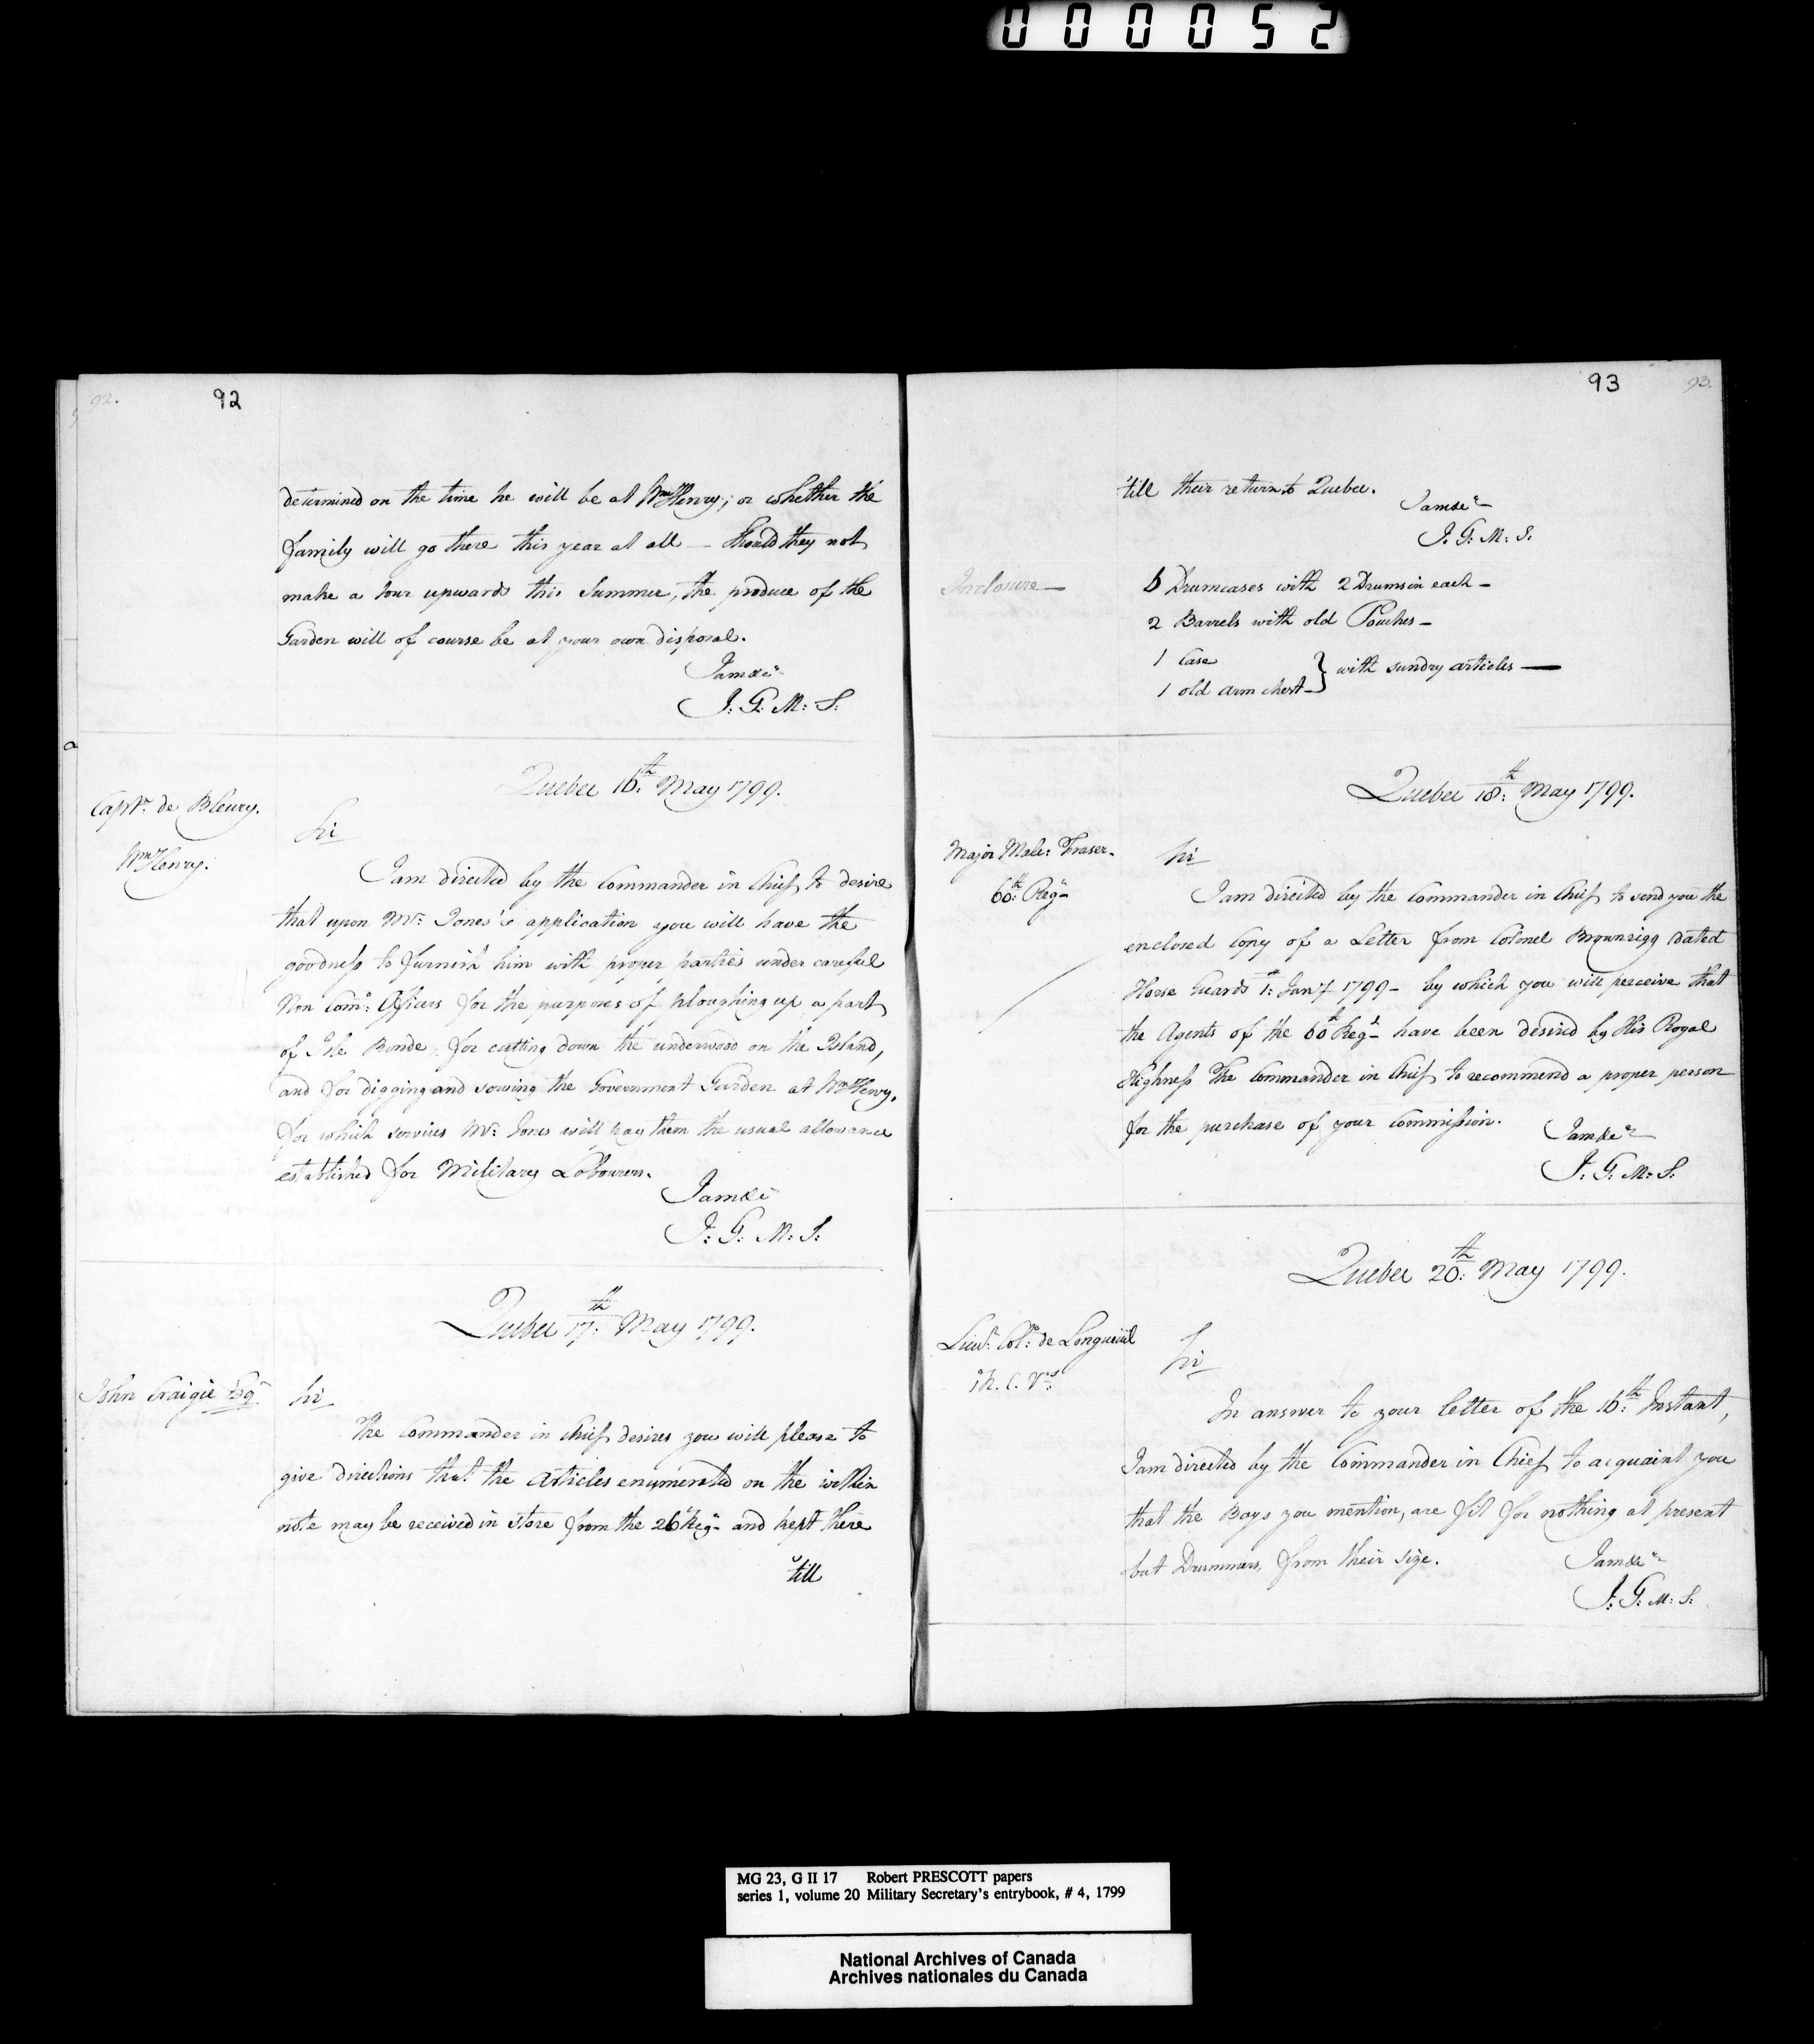 000052
92. 92
determined on the time he will be at Wm Henry; or whether the
family will go there this year at all — Should they not
make a tour upwards this Summer, the produce of the
Garden will of course be at your own disposal.
I am &c
J: G: M: S:
Quebec 16th: May 1799.
Captn: de Bleury.
Wm Henry:
Sir
I am directed by the Commander in Chief to desire
that upon Mr: Jones's application you will have the
goodness to furnish him with proper parties under careful
Non Comd: Officers for the purposes of ploughing up a part
of Isle Ronde, for cutting down the underwood on the Island,
and for digging and sowing the Government Garden at Wm Henry,
for which services Mr: Jones will pay them the usual allowance
established for Military Labourers.
I am &c
J: G: M: S:
Quebec 17th: May 1799.
John Craigie Esqr
Sir
The Commander in Chief desires you will please to
give directions that the Articles enumerated on the within
note may be received in store from the 26th Regt and kept there
'till
93 93.
'till their return to Quebec.
I am &c
J. G: M: S:
Inclosure —
6 Drumcases with 2 Drums in each —
2 Barrels with old Pouches —
1 Case
1 old arm chest — } with sundry articles —
Quebec 18th: May 1799.
Major Malc: Fraser.
60th: Regt
Sir
I am directed by the Commander in Chief to send you the
enclosed Copy of a Letter from Colonel Brownrigg dated
Horse Guards 1st: Jany 1799 — by which you will perceive that
the Agents of the 60th Regt have been desired by His Royal
Highness The Commander in Chief to recommend a proper person
for the purchase of your Commission.
I am &c
J: G: M: S:
Quebec 20th: May 1799.
Lieut: Colo: de Longueuil
R. C. Vrs:
Sir
In answer to your letter of the 16th: Instant,
I am directed by the Commander in Chief to acquaint you
that the Boys you mention, are fit for nothing at present
but Drummers, from their size.
I am &c
J: G: M: S:
MG 23, G II 17 Robert PRESCOTT papers
series 1, volume 20 Military Secretary's entrybook, # 4, 1799
National Archives of Canada
Archives nationales du Canada